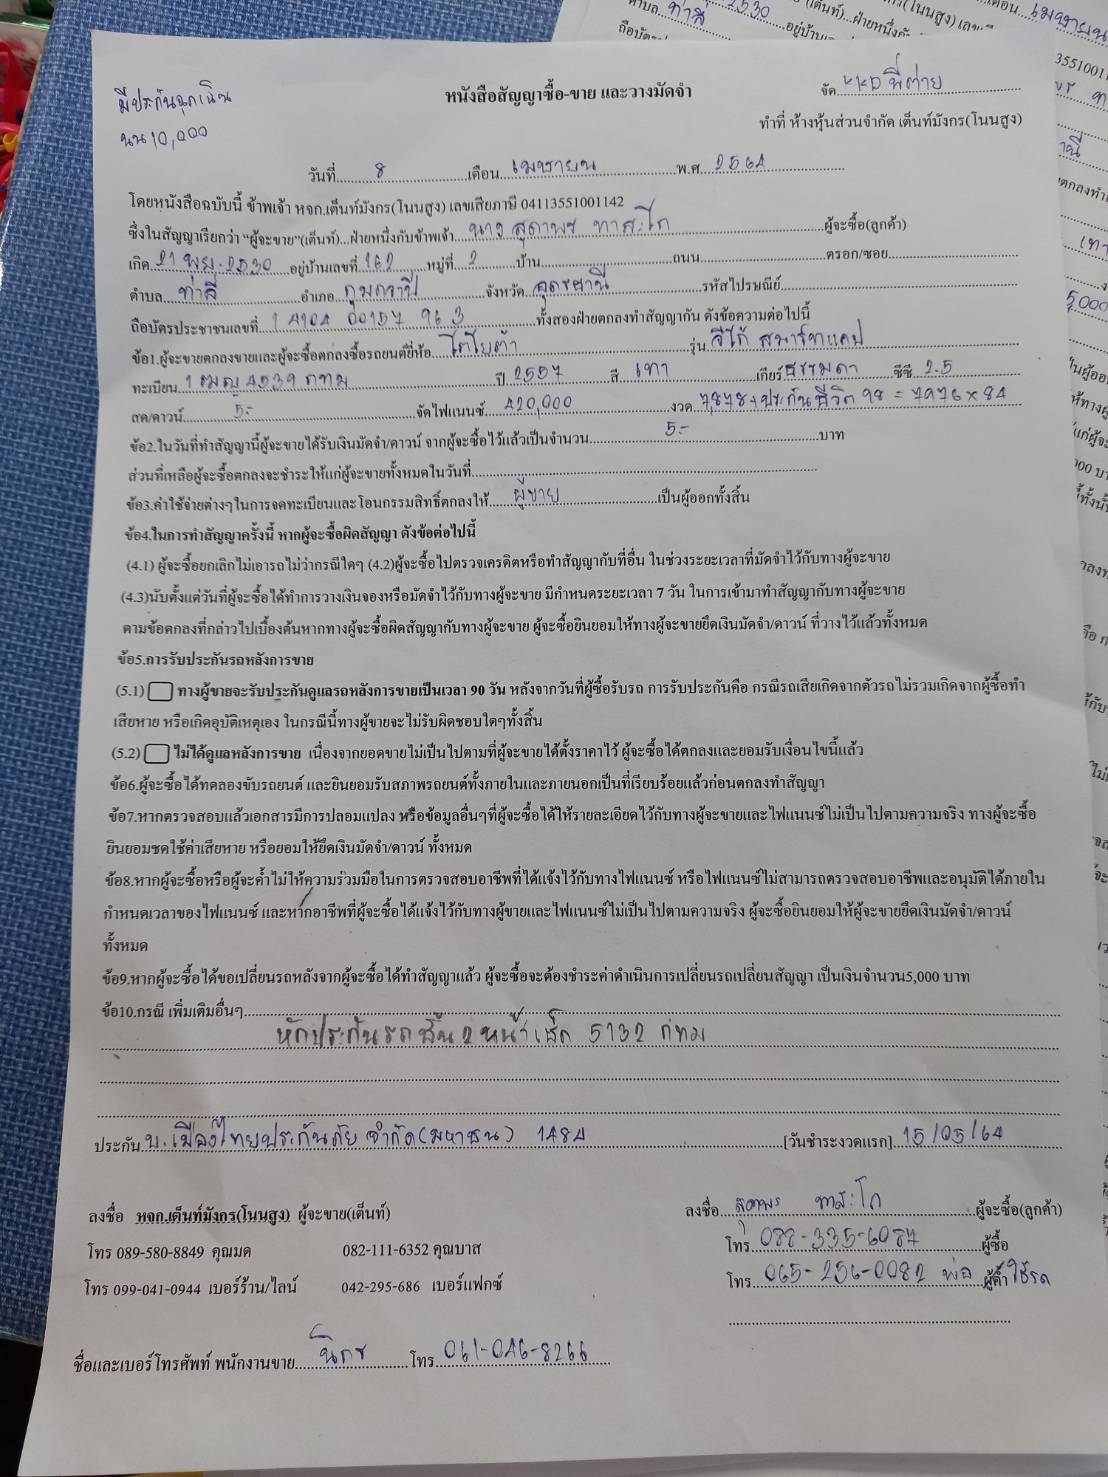 มีประกันฉุกเฉิน
นน 10,000
หนังสือสัญญาซื้อ-ขาย และวางมัดจำ
จัด KKP พี่ต่าย
ทำที่ ห้างหุ้นส่วนจำกัด เต็นท์มังกร(โนนสูง)
วันที่ 8 เดือน เมษายน พ.ศ. 2564
โดยหนังสือฉบับนี้ ข้าพเจ้า หจก.เต็นท์มังกร(โนนสูง) เลขเสียภาษี 04113551001142
ซึ่งในสัญญาเรียกว่า "ผู้จะขาย"(เต็นท์)...ฝ่ายหนึ่งกับข้าพเจ้า นาง สุดาพร ทาสะโก ผู้จะซื้อ(ลูกค้า)
เกิด 21 พ.ย. 2530 อยู่บ้านเลขที่ 162 หมู่ที่ 2 บ้าน ถนน ตรอก/ซอย
ตำบล ท่าลี่ อำเภอ กุมภวาปี จังหวัด อุดรธานี รหัสไปรษณีย์
ถือบัตรประชาชนเลขที่ 1 4104 00157 96 3 ทั้งสองฝ่ายตกลงทำสัญญากัน ดังข้อความต่อไปนี้
ข้อ1.ผู้จะขายตกลงขายและผู้จะซื้อตกลงซื้อรถยนต์ยี่ห้อ โตโยต้า รุ่น วีโก้ สมาร์ทแคป
ทะเบียน 1 ฒญ 4539 กทม ปี 2557 สี เทา เกียร์ ธรรมดา ซีซี 2.5
สด/ดาวน์ 5.- จัดไฟแนนซ์ 420,000 งวด 7,878 + ประกันชีวิต 98 = 7976 x 84
ข้อ2.ในวันที่ทำสัญญานี้ผู้จะขายได้รับเงินมัดจำ/ดาวน์ จากผู้จะซื้อไว้แล้วเป็นจำนวน 5.- บาท
ส่วนที่เหลือผู้จะซื้อตกลงจะชำระให้แก่ผู้จะขายทั้งหมดในวันที่
ข้อ3.ค่าใช้จ่ายต่างๆในการจดทะเบียนและโอนกรรมสิทธิ์ตกลงให้ ผู้ขาย เป็นผู้ออกทั้งสิ้น
ข้อ4.ในการทำสัญญาครั้งนี้ หากผู้จะซื้อผิดสัญญา ดังข้อต่อไปนี้
(4.1) ผู้จะซื้อยกเลิกไม่เอารถไม่ว่ากรณีใดๆ (4.2)ผู้จะซื้อไปตรวจเครดิตหรือทำสัญญากับที่อื่น ในช่วงระยะเวลาที่มัดจำไว้กับทางผู้จะขาย
(4.3)นับตั้งแต่วันที่ผู้จะซื้อได้ทำการวางเงินจองหรือมัดจำไว้กับทางผู้จะขาย มีกำหนดระยะเวลา 7 วัน ในการเข้ามาทำสัญญากับทางผู้จะขาย
ตามข้อตกลงที่กล่าวไปเบื้องต้นหากทางผู้จะซื้อผิดสัญญากับทางผู้จะขาย ผู้จะซื้อยินยอมให้ทางผู้จะขายยึดเงินมัดจำ/ดาวน์ ที่วางไว้แล้วทั้งหมด
ข้อ5.การรับประกันรถหลังการขาย
(5.1) ทางผู้ขายจะรับประกันดูแลรถหลังการขายเป็นเวลา 90 วัน หลังจากวันที่ผู้ซื้อรับรถ การรับประกันคือ กรณีรถเสียเกิดจากตัวรถไม่รวมเกิดจากผู้ซื้อทำ
เสียหาย หรือเกิดอุบัติเหตุเอง ในกรณีนี้ทางผู้ขายจะไม่รับผิดชอบใดๆทั้งสิ้น
(5.2) ไม่ได้ดูแลหลังการขาย เนื่องจากยอดขายไม่เป็นไปตามที่ผู้จะขายได้ตั้งราคาไว้ ผู้จะซื้อได้ตกลงและยอมรับเงื่อนไขนี้แล้ว
ข้อ6.ผู้จะซื้อได้ทดลองขับรถยนต์ และยินยอมรับสภาพรถยนต์ทั้งภายในและภายนอกเป็นที่เรียบร้อยแล้วก่อนตกลงทำสัญญา
ข้อ7.หากตรวจสอบแล้วเอกสารมีการปลอมแปลง หรือข้อมูลอื่นๆที่ผู้จะซื้อได้ให้รายละเอียดไว้กับทางผู้จะขายและไฟแนนซ์ไม่เป็นไปตามความจริง ทางผู้จะซื้อ
ยินยอมชดใช้ค่าเสียหาย หรือยอมให้ยึดเงินมัดจำ/ดาวน์ ทั้งหมด
ข้อ8.หากผู้จะซื้อหรือผู้จะค้ำไม่ให้ความร่วมมือในการตรวจสอบอาชีพที่ได้แจ้งไว้กับทางไฟแนนซ์ หรือไฟแนนซ์ไม่สามารถตรวจสอบอาชีพและอนุมัติได้ภายใน
กำหนดเวลาของไฟแนนซ์ และหากอาชีพที่ผู้จะซื้อได้แจ้งไว้กับทางผู้ขายและไฟแนนซ์ไม่เป็นไปตามความจริง ผู้จะซื้อยินยอมให้ผู้จะขายยึดเงินมัดจำ/ดาวน์
ทั้งหมด
ข้อ9.หากผู้จะซื้อได้ขอเปลี่ยนรถหลังจากผู้จะซื้อได้ทำสัญญาแล้ว ผู้จะซื้อจะต้องชำระค่าดำเนินการเปลี่ยนรถเปลี่ยนสัญญา เป็นเงินจำนวน5,000 บาท
ข้อ10.กรณี เพิ่มเติมอื่นๆ
หักประกันรถชั้น 2 หน้าเช็ค 5132 กทม
ประกัน บ.เมืองไทยประกันภัย จำกัด(มหาชน) 1484 [วันชำระงวดแรก] 15/05/64
ลงชื่อ หจก.เต็นท์มังกร(โนนสูง) ผู้จะขาย(เต็นท์)
ลงชื่อ สุดาพร ทาสะโก ผู้จะซื้อ(ลูกค้า)
โทร 089-580-8849 คุณมด 082-111-6352 คุณบาส
โทร 088-335-6087 ผู้ซื้อ
โทร 099-041-0944 เบอร์ร้าน/ไลน์ 042-295-686 เบอร์แฟกซ์
โทร 065-256-0082 พ่อ ผู้ค้ำ ใช้รถ
ชื่อและเบอร์โทรศัพท์ พนักงานขาย นิกร โทร 061-046-8266